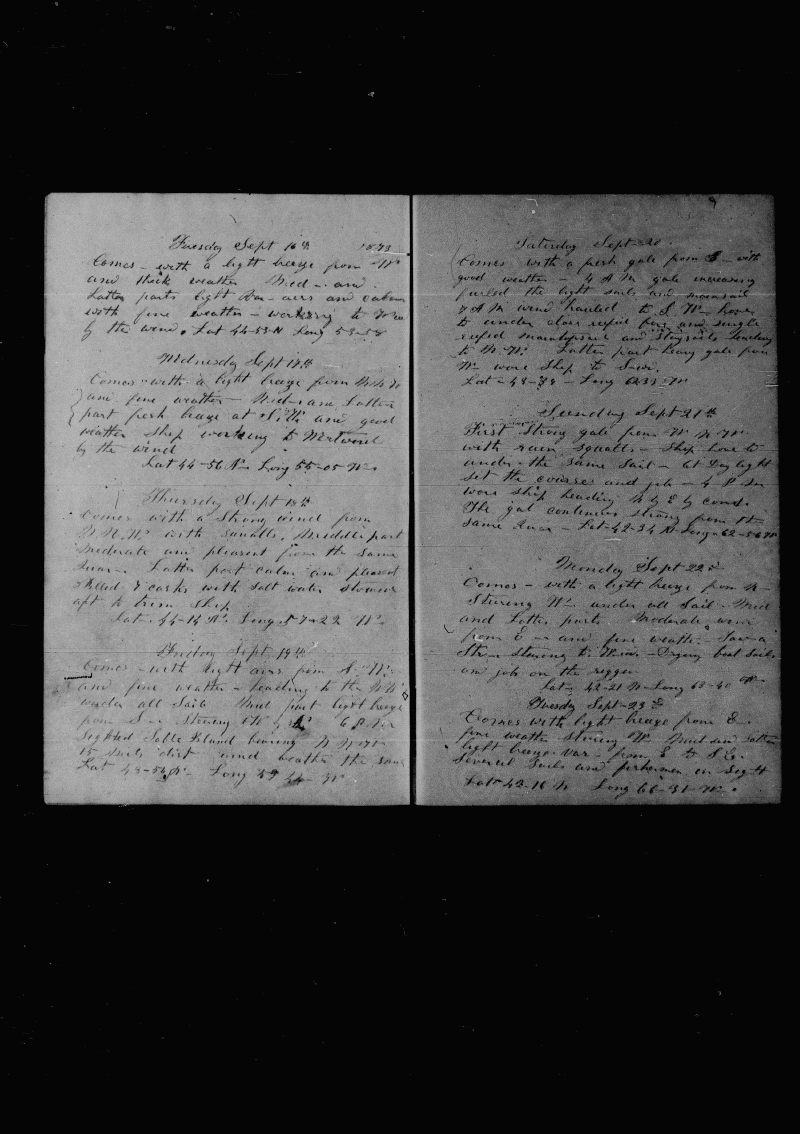 Tuesday Sept 16th 1873
Comes - with a light breeze from W
and thick weather Mid - and
Latter parts light Bar - airs and calms
with fine weather - working to W
by the wind. Lat 44-53 N Long 53-58
Wednesday Sept 17th
Comes - with a light breeze from W N W
and fine weather - Mid - and Latter
part fresh breeze at and good
weather Ship working to Westward
by the wind
Lat 44-56 N - Long 55-05 W
Thursday Sept 18th
Comes with a Strong wind from
W N W with squalls, Middle part
Moderate and pleasant from the same
quar - Latter part calm and pleasant
filled 7 casks with salt water
aft to trim Ship
Lat 44-14 N. Long 57-22 W
Friday Sept 19th
Comes - with light airs from W
and fine weather - heading to the
under all Sail Mid part light breeze
from S - Stering 6 P.M
Sighted Sable Island bearing N N W
15 miles dist wind weather the same
Lat 43-54 N Long 59 W
Saturday Sept 20
Comes with a fresh gale from E - with
good weather - 4 A M gale increasing
furled the light sails and mainsail
7 A M wind hauled to S W - hove
to under close reefed fore and single
reefed maintopsail and Staysails heading
to N. W. Latter part heavy gale from
W - wore Ship to
Lat - 43-34 - Long W
Sunday Sept 21th
First Strong gale from W N W
with rain squalls - Ship hove to
under the same Sail - at Day light
set the courses and jib - 4 P M
wore ship heading N by E by comp.
The gale continues strong from the
same quar - Lat-42-34 N-Long-62-56 W
Monday Sept 22d
Comes - with a light breeze from N -
Stering W. under all Sail - Mid
and Latter parts Moderate wind
from E - and fine weather
Stering to - Drying boat Sails
and job on the rigger
Lat - 42-21 N - Long 63-40 W
Tuesday Sept - 23d
Comes with light breeze from E -
fine weather stering W - Mid and Latter
light breeze - Var - from E to S E.
Several Sails and fishermen in Sight
Lat - 43-16 N Long 66-31-W.